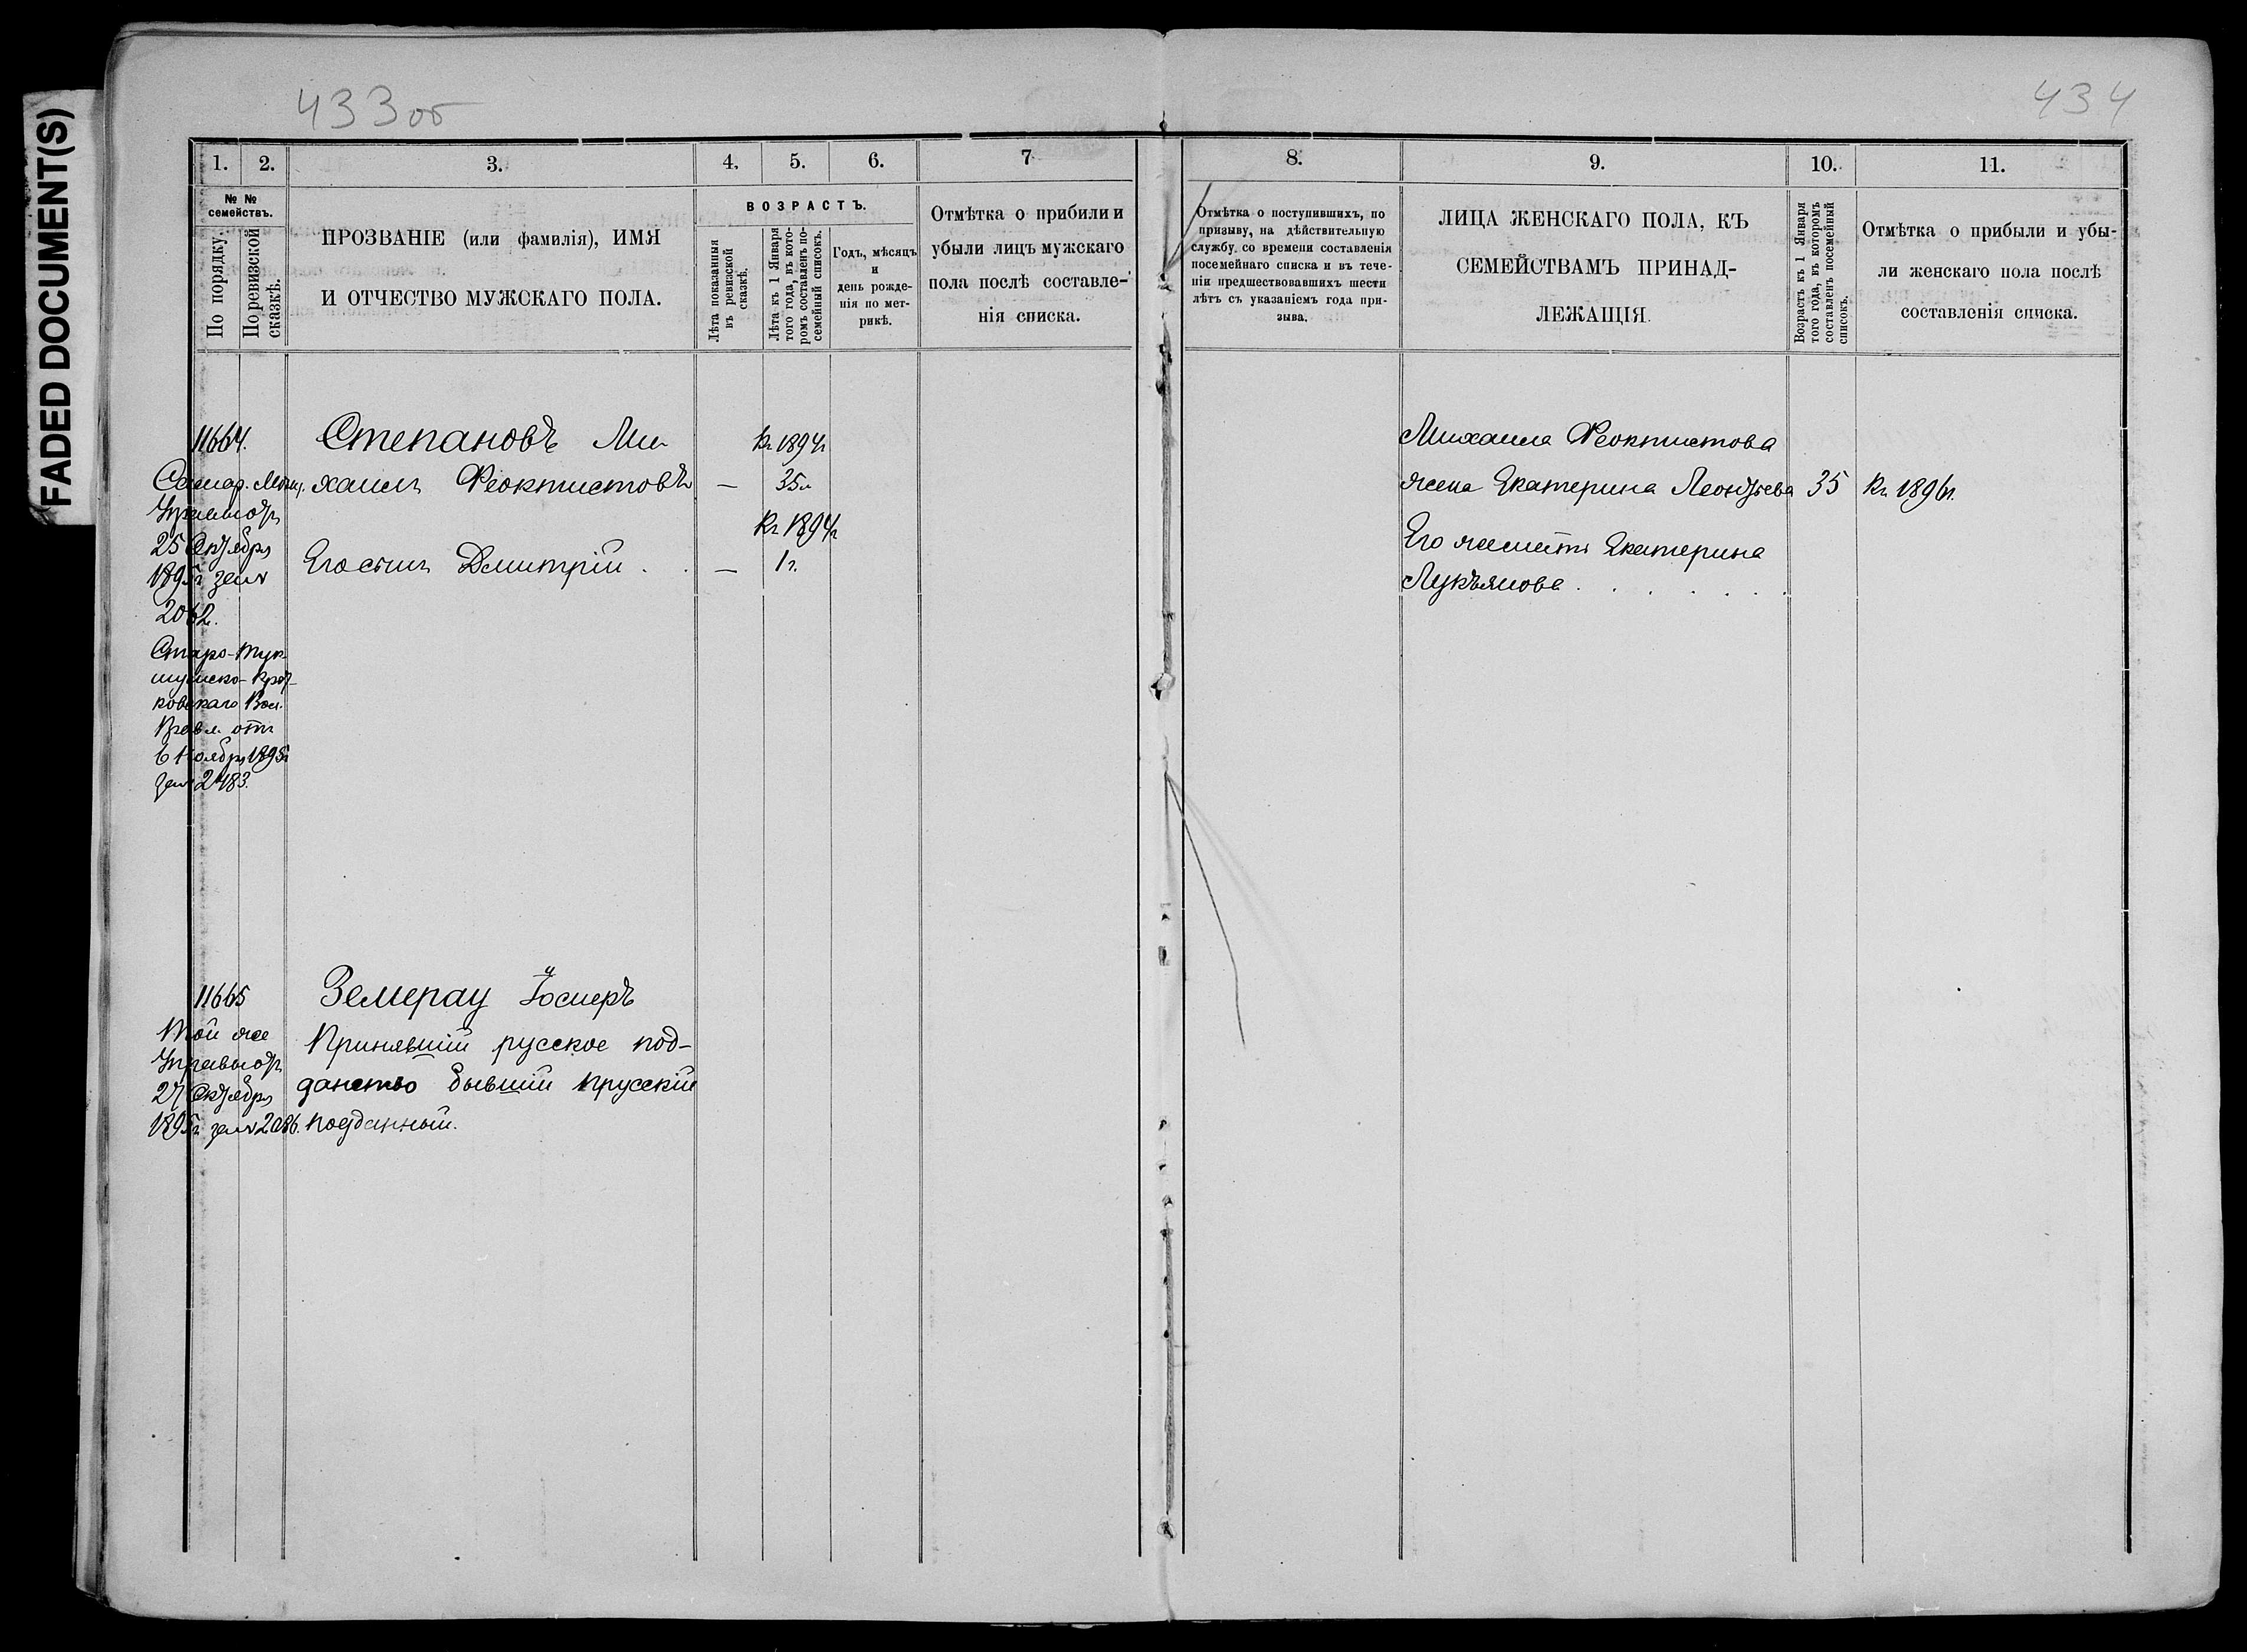 FADED DOCUMENT(S)
433об
434
1.
2.
3.
4.
5.
6.
7
№ №
семействъ.
По порядку.
По ревизской
сказкѣ.
ПРОЗВАНІЕ (или фамилія), ИМЯ
И ОТЧЕСТВО МУЖСКАГО ПОЛА.
ВОЗРАСТЪ.
Лѣта показанныя
въ ревизской
сказкѣ.
Лѣта къ 1 Января
того года, въ кото-
ромъ составленъ по-
семейный списокъ.
Годъ, мѣсяцъ
и
день рожде-
нія по мет-
рикѣ.
Отмѣтка о прибыли и
убыли лицъ мужскаго
пола послѣ составле-
нія списка.
8.
9.
10.
11.
Отмѣтка о поступившихъ, по
призыву, на дѣйствительную
службу, со времени составленія
посемейнаго списка и въ тече-
ніи предшествовавшихъ шести
лѣтъ съ указаніемъ года при-
зыва.
ЛИЦА ЖЕНСКАГО ПОЛА, КЪ
СЕМЕЙСТВАМЪ ПРИНАД-
ЛЕЖАЩІЯ.
Возрастъ къ 1 Января
того года, въ которомъ
составленъ посемейный
списокъ.
Отмѣтка о прибыли и убы-
ли женскаго пола послѣ
составленія списка.
11664.
Самар. Мѣщ.
Управы отъ
25 Октября
1895г за №
2062.
Старо-
ковскаго Вол.
Правл. отъ
6 Ноября 1895г
за № 2483.
Степановъ Ми-
хаилъ Феоктистовъ —
Къ 1894г
35л
Его сынъ Дмитрій . . —
Къ 1894г
1г.
Михаила Феоктистова
жена Екатерина Леонтьева 35 Къ 1896г.
Его же мать Екатерина
Лукъянова . . . . . .
11665
Той же
Управы отъ
27 Октября
1895г за № 2086.
Земерау
Принявшій русское под-
данство бывшій прусскій
подданный.